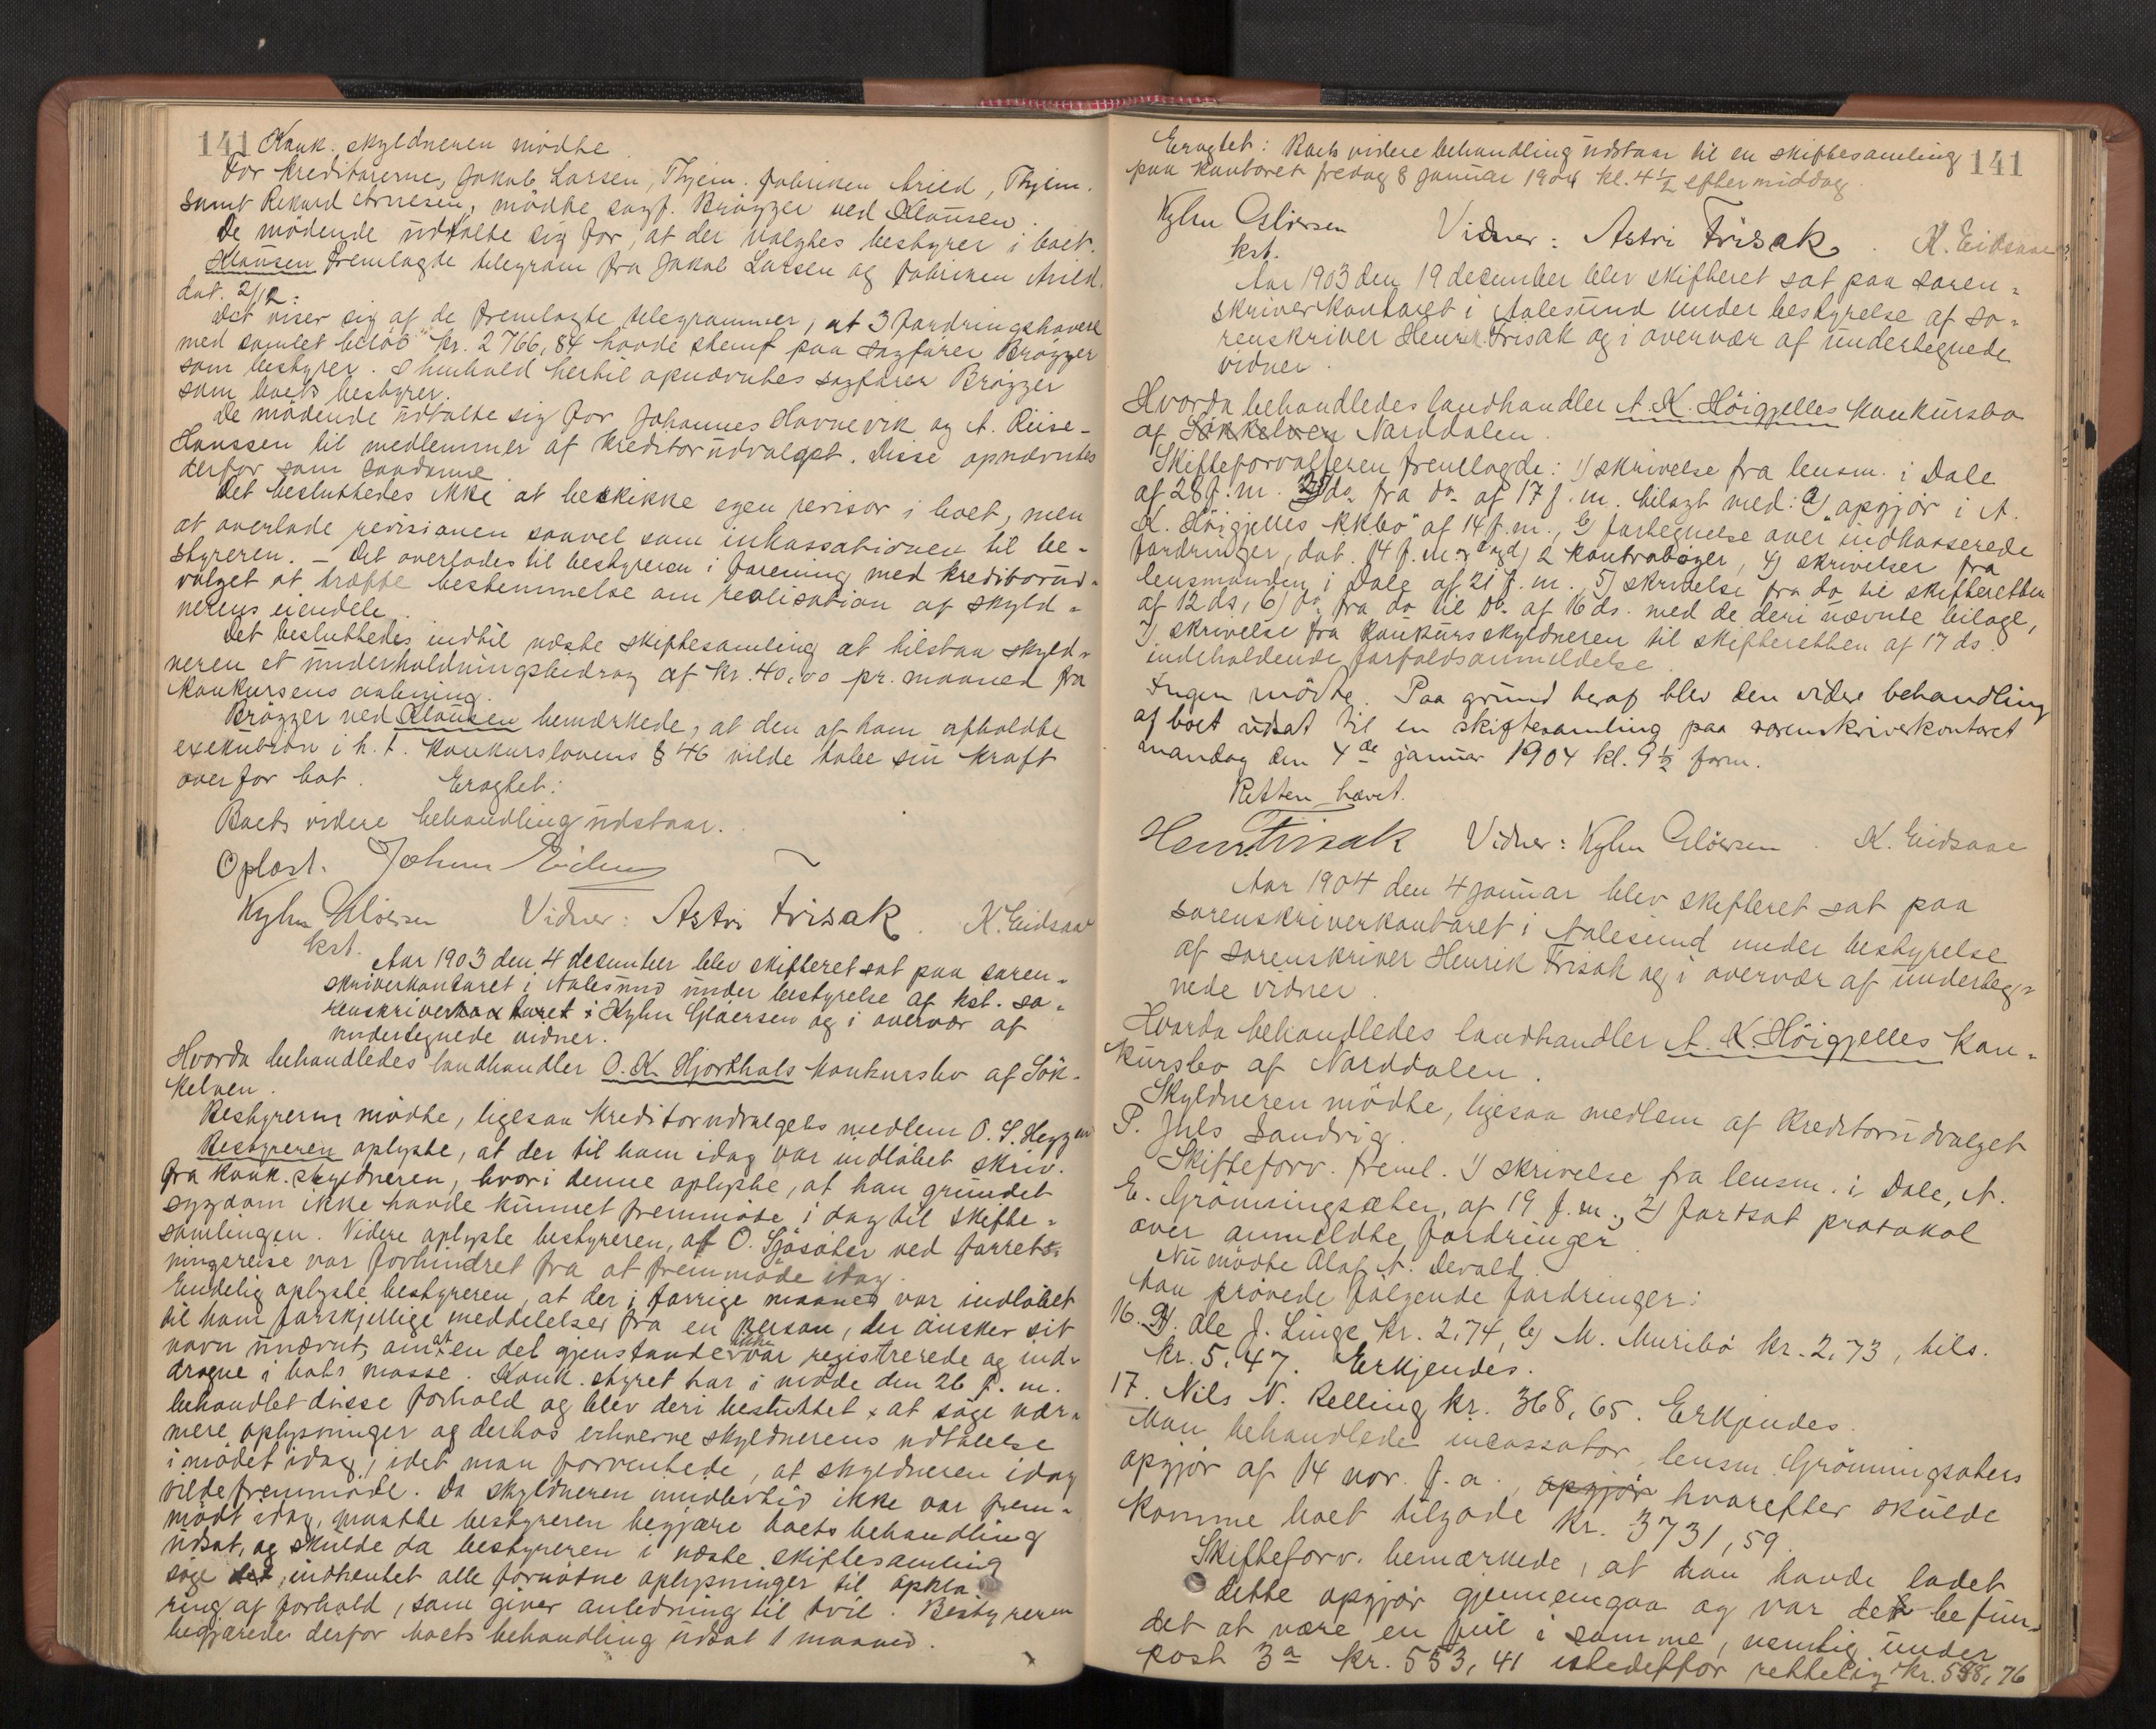 141 Konk. skyldneren mødte
For kreditorerne, Jakob Larsen, Thjem. fabriken Arild, Thjem.
samt Rikard Arnesen, mødte sagf. Brøgger ved Klausen.
De mødende udtalte sig for, at der valgtes bestyrer i boet.
Klausen fremlagde telegram fra Jakob Larsen og fabriken Arild.
dat. 2/12:
Det viser sig af de fremlagte telegrammer, at 3 fordringshavere
med samlet beløb kr. 2766,84 havde stemt paa sagfører Brøgger
som bestyrer. I henhold hertil opnævntes sagfører Brøgger
som boets bestyrer.
De mødende udtalte sig for Johannes Havnevik og A. Riise-
Hanssen til medlemmer af kreditorudvalget. Disse opnævntes
derfor som saadanne.
Det besluttedes ikke at beskikke egen revisor i boet, men
at overlade revisionen saavel som inkassationen til be-
styreren. – Det overlodes til bestyreren i forening med kreditorud-
valget at træffe bestemmelse om realisation af skyld-
nerens eiendele.
Det besluttedes indtil næste skiftesamling at tilstaa skyld-
neren et underholdningsbidrag af kr. 40,00 pr. maaned fra
konkursens aabning.
Brøgger ved Klausen bemærkede, at den af ham afholdte
exekution i h. t. konkurslovens § 46 vilde tabe sin kraft
overfor bot. Eragtet:
Boets videre behandling udstaar.
Oplæst. Johan
Kyhn Gløersen Vidner: Astri Frisak. K. Eidsaae
kst.
Aar 1903 den 4 desember blev skifteret sat paa soren-
skriverkontoret i Aalesund under bestyrelse af kst. so-
renskriverkontoret i Kyhn Gløersen og i overvær af
undertegnede vidner.
Hvorda behandledes landhandler O. K. Hjorthols konkursbo af Søk-
kelven.
Bestyreren mødte, ligesaa kreditorudvalgets medlem O. S. Heggen
Bestyreren oplyste, at der til ham idag var indløbet skriv.
fra konk. skyldneren, hvori denne oplyste, at han grundet
sygdom ikke havde kunnet fremmøde i dag til skifte-
samlingen. Videre oplyste bestyreren, at O. Sjøsæter ved forret-
ningsreise var forhindret fra at fremmøde idag.
Endelig oplyste bestyreren, at der i forrige maaned var indløbet
til ham forskjellige meddelelser fra en person, der ønsker sit
navn unævnt, om at en del gjenstande ikke var registrerede og ind-
dragne i bots masse. Konk. styret har i møde den 26 f. m.
behandlet disse forhold og blev deri besluttet at søge nær-
mere oplysninger og derhos erhverve skyldnerens udtalelse
i mødet idag, idet man forventede, at skyldneren idag
vilde fremmøde. Da skyldneren imidlertid ikke var frem-
mødt idag, maatte bestyreren begjære boets behandling
udsat, og skulde da bestyreren i næste skiftesamling
søge indhentet alle fornødne oplysninger til opkla-
ring af forhold, som giver anledning til tvil. Bestyreren
begjærede derfor boets behandling udsat 1 maaned.
Eragtet: Boets videre behandling udstaar til en skiftesamling 141
paa kontoret fredag 8 januar 1904 kl. 4 1/2 eftermiddag.
Kyhn Gløersen Vidner: Astri Frisak. K. Eidsaae
kst.
Aar 1903 den 19 desember blev skifteret sat paa soren-
skriverkontoret i Aalesund under bestyrelse af so-
renskriver Henrik Frisak og i overvær af undertegnede
vidner.
Hvorda behandledes landhandler A. K. Höigjelles konkursbo
af Søkkelven Norddalen.
Skifteforvalteren fremlagde: 1) skrivelse fra lensm. i Dale
af 28 f. m. 2) do. fra do. af 17 f. m. bilagt med: a) "opgjør i A.
K. Höigjelles kkbo" af 14 f. m., b) fortegnelse over indkasserede
fordringer, dat. 14 f. m. c og d) 2 kontrabøger, 4) skrivelser fra
lensmanden i Dale af 21 f. m., 5) skrivelse fra do. til skifteretten
af 12 ds, 6) do. fra do. til do. af 16 ds. med de deri nævnte bilage,
7) skrivelse fra konkursskyldneren til skifteretten af 17 ds.
indeholdende forfaldsanmeldelse.
Ingen mødte. Paa grund heraf blev den videre behandling
af boet udsat til en skiftesamling paa sorenskriverkontoret
mandag den 4de januar 1904 kl. 9 1/2 form.
Retten hævet.
Henr. Frisak Vidner: Kyhn Gløersen. K. Eidsaae
Aar 1904 den 4 januar blev skifteret sat paa
sorenskriverkontoret i Aalesund under bestyrelse
af sorenskriver Henrik Frisak og i overvær af underteg-
nede vidner.
Hvorda behandledes landhandler A. K. Höigjelles kon-
kursbo af Norddalen.
Skyldneren mødte, ligesaa medlem af kreditorudvalget
P. Juls Sandvig.
Skifteforv. freml. 1) skrivelse fra lensm. i Dale, A.
E. Grönningsæter, af 19 f. m., 2) fortsat protokol
over anmeldte fordringer.
Nu mødte Olaf A. Devold.
Man prøvede følgende fordringer:
16. a). Ole J. Linge kr. 2,74, b) M. Muribø kr. 2,73, tils.
kr. 5,47. Erkjendes.
17. Nils N. Relling kr. 368,65. Erkjendes.
Man behandlede incassator, lensm. Grönningsæters
opgjør af 14 nov. f. a., opgjør hvorefter skulde
komme boet tilgode kr. 3731,59.
Skifteforv. bemærkede, at man havde ladet
dette opgjør gjennemgaa og var det befun-
det at være en feil i samme, nemlig under
post 3a kr. 553,41 istedetfor rettelig kr. 558,76